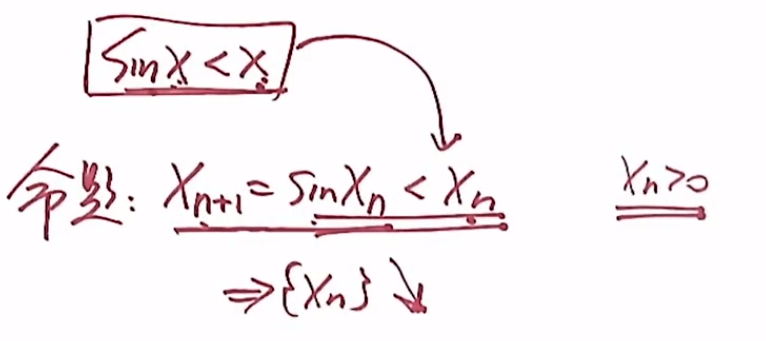 sinx < x
命题: Xn+1 = sinXn < Xn Xn>0
⇒{Xn}↘